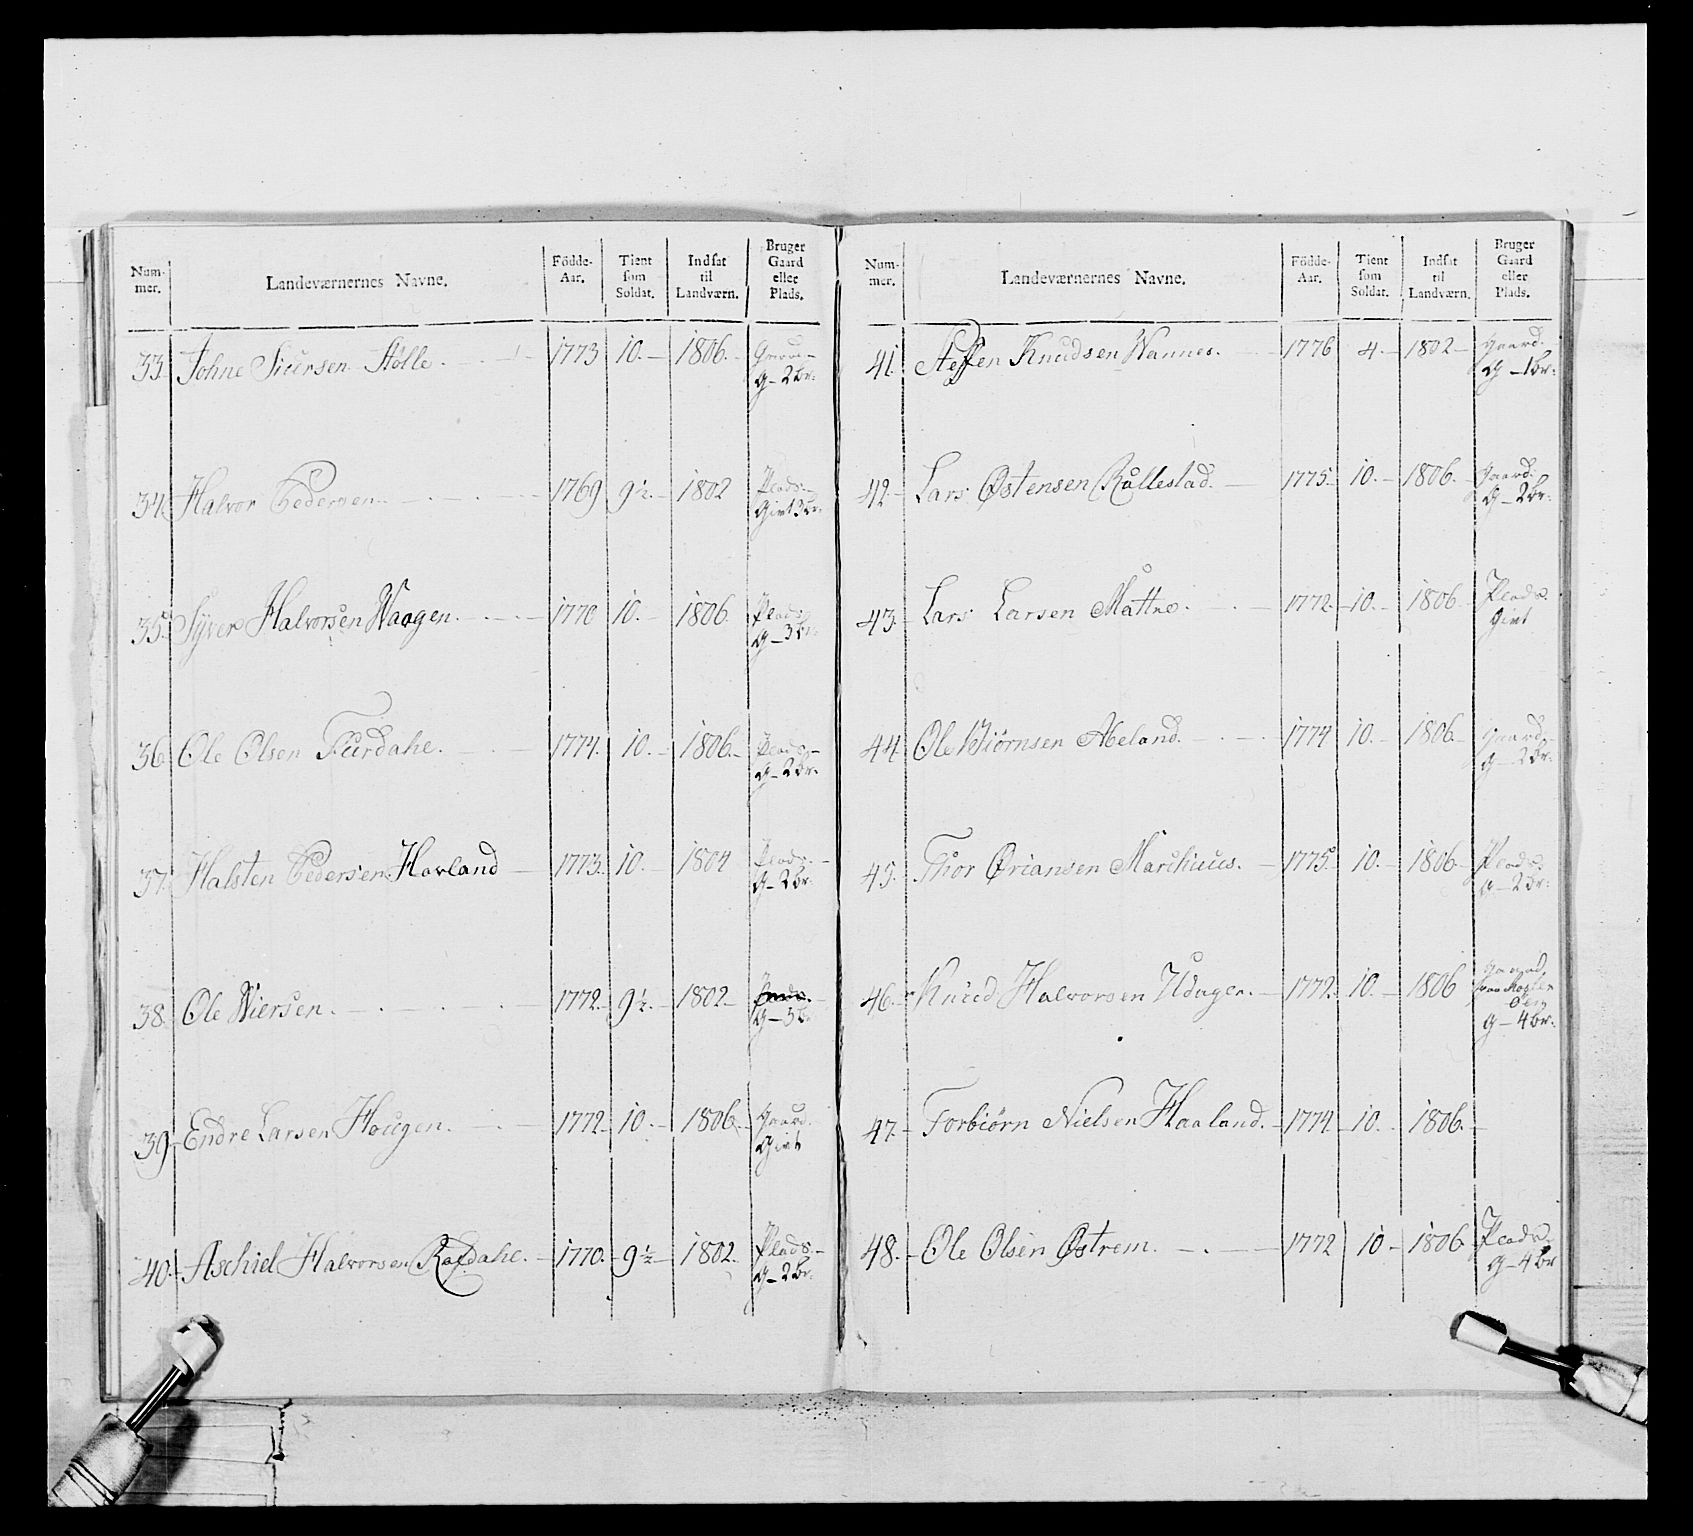 Num-mer. Landeværnernes Navne. Födde-Aar. Tient som Soldat. Indsat til Landværn. Bruger Gaard eller Plads.
33. Johne Siursen Stølle. 1773 10. 1806.
G - 2 br:
34. Halvor Pedersen. 1769 9½. 1802 Plads.
Givt 3 br:
35. Syver Halvorsen Waagen. 1770 10. 1806. Plads.
G - 3 br:
36. Ole Olsen Furdahe. 1774. 10. 1806. Plads.
G - 2 br.
37. Halsten Pedersen Hovland 1773. 10. 1804 Plads.
G - 2 br:
38. Ole Wiersen. 1772. 9½. 1802.
G - 3 br
39. Endre Larsen Hougen. 1772. 10. 1806. Gaard.
Givt
40. Aschiel Halvorsen Rafdahe. 1770. 9½ 1802. Plads.
G - 2 br.
Num-mer. Landeværnernes Navne. Födde-Aar. Tient som Soldat. Indsat til Landværn. Bruger Gaard eller Plads.
41. Steffen Knudsen Wannes. 1776 4. 1802 Gaard.
G - 1 br:
42. Lars Østensen Rullestad. 1775. 10. 1806. Gaard.
G - 2 br.
43. Lars Larsen Mattre. 1772. 10. 1806 Plads.
Givt
44. Ole Biørnsen Abeland. 1774 10. 1806. Gaard.
G - 2 br.
45. Thor Øriansen Marchuus. 1775. 10. 1806 Plads
G - 2 br:
46. Knud Halvorsen Udager. 1772. 10. 1806 Gaard
G - 4 br.
47. Torbiörn Nielsen Haaland. 1774 10. 1806.
48. Ole Olsen Østrem. 1772 10 1806 Plads
G - 4 br